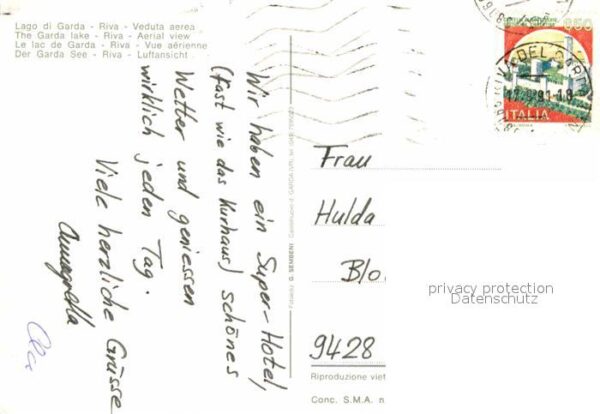 Lago di Garda - Riva - Veduta aerea
The Garda lake - Riva - Aerial view
Le lac de Garda - Riva - Vue aérienne
Der Garda See - Riva - Luftansicht
Wir haben ein Super-Hotel,
(fast wie das Kurhaus) schönes
Wetter und geniessen
wirklich jeden Tag.
Viele herzliche Grüsse
Annegretta
G. SEMBENI
650
RIVA DEL GARDA
ITALIA
Frau
Hulda
Blo
9428
privacy protection
Datenschutz
Riproduzione viet
Conc. S.M.A. n.